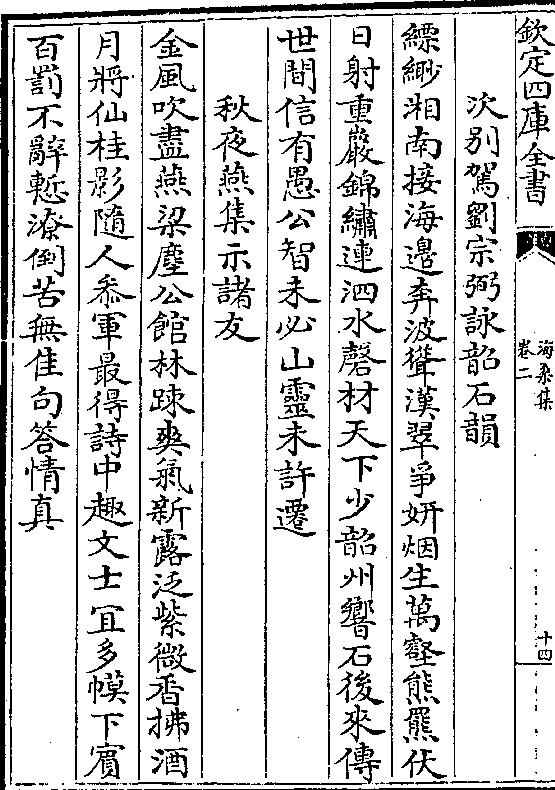 欽定四庫全書
海桑集
卷二
十四
次別駕劉宗弼詠韶石韻
縹緲湘南接海邉奔波聳漢翠爭妍烟生萬壑熊羆伏
日射重巖錦繡連泗水磬材天下少韶州響石後來傳
世間信有愚公智未必山靈未許遷
秋夜燕集示諸友
金風吹盡燕梁塵公館林踈爽氣新露泛紫微香拂酒
月將仙桂影隨人叅軍最得詩中趣文士冝多幙下賔
百罰不辭慙潦倒苦無佳句答情真